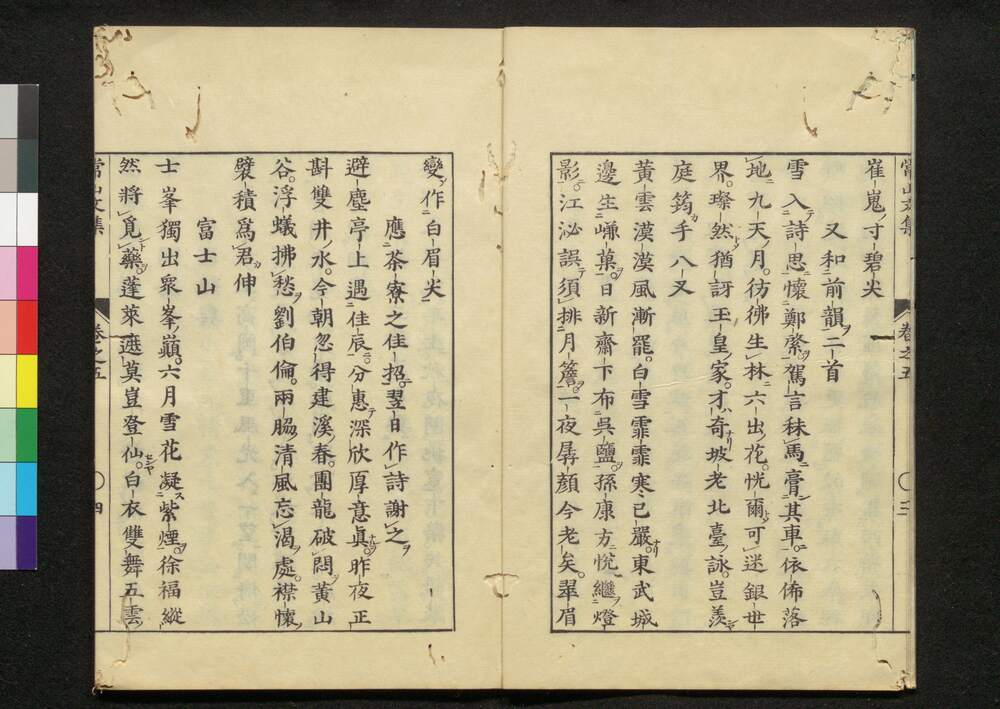 常山文集
卷之五
〇三
崔嵬寸碧尖
又和前韻二首
雪入詩思懷鄭綮駕言秣馬膏其車依俙落
地九天月彷彿生林六出花恍爾可迷銀世
界璨然猶訝玉皇家才奇坡老北臺詠豈羨
庭筠手八叉
黃雲漠漠風漸罷白雪霏霏寒已嚴東武城
邊生嵰菓日新齋下布吳鹽孫康方悅繼燈
影江泌誤須排月簷一夜孱顏今老矣翠眉
變作白眉尖
應茶寮之佳招翌日作詩謝之
避塵亭上遇佳辰分惠深欣厚意眞昨夜正
斟雙井水今朝忽得建溪春團龍破悶黃山
谷浮蟻拂愁劉伯倫兩腸清風忘渴處襟懷
襞積爲君伸
富士山
士峯獨出衆峯巓六月雪花凝紫煙徐福縱
然將覓藥蓬萊遮莫豈登仙白衣雙舞五雲
常山文集
卷之五
〇四